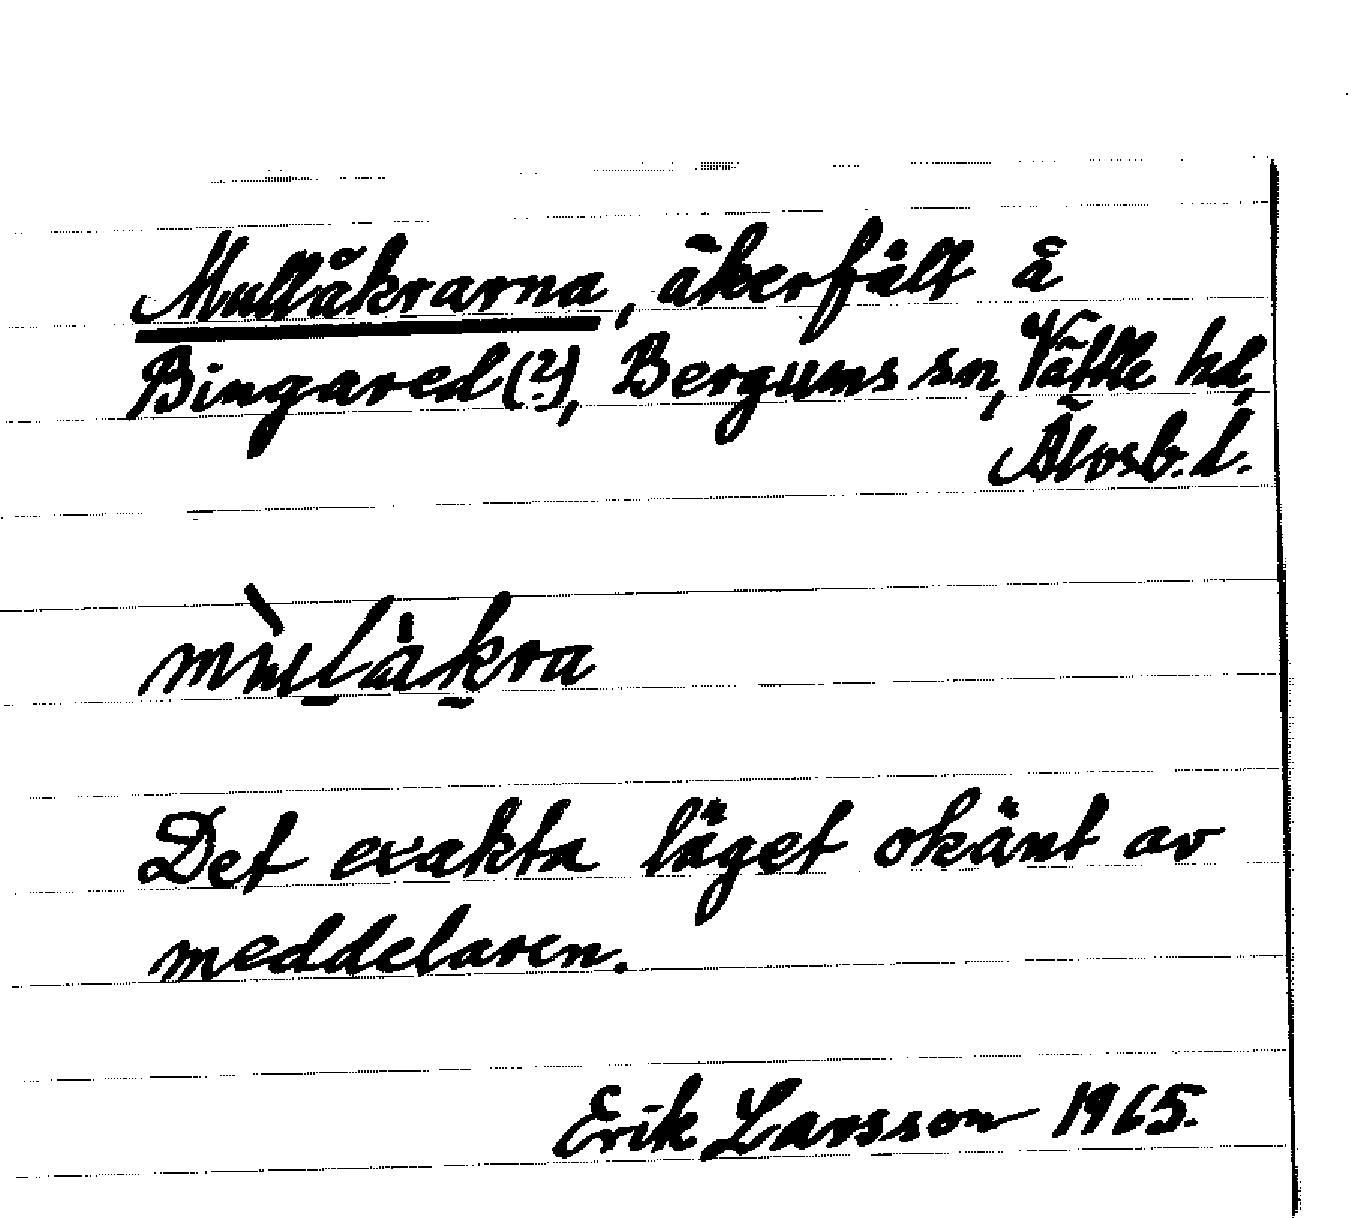 Mullåkrarna, åkerfält å
Bingared (?), Bergums sn, Vättle hd,
Älvsb. l.
mùlåkra
Det exakta läget okänt av
meddelaren.
Erik Larsson 1965.